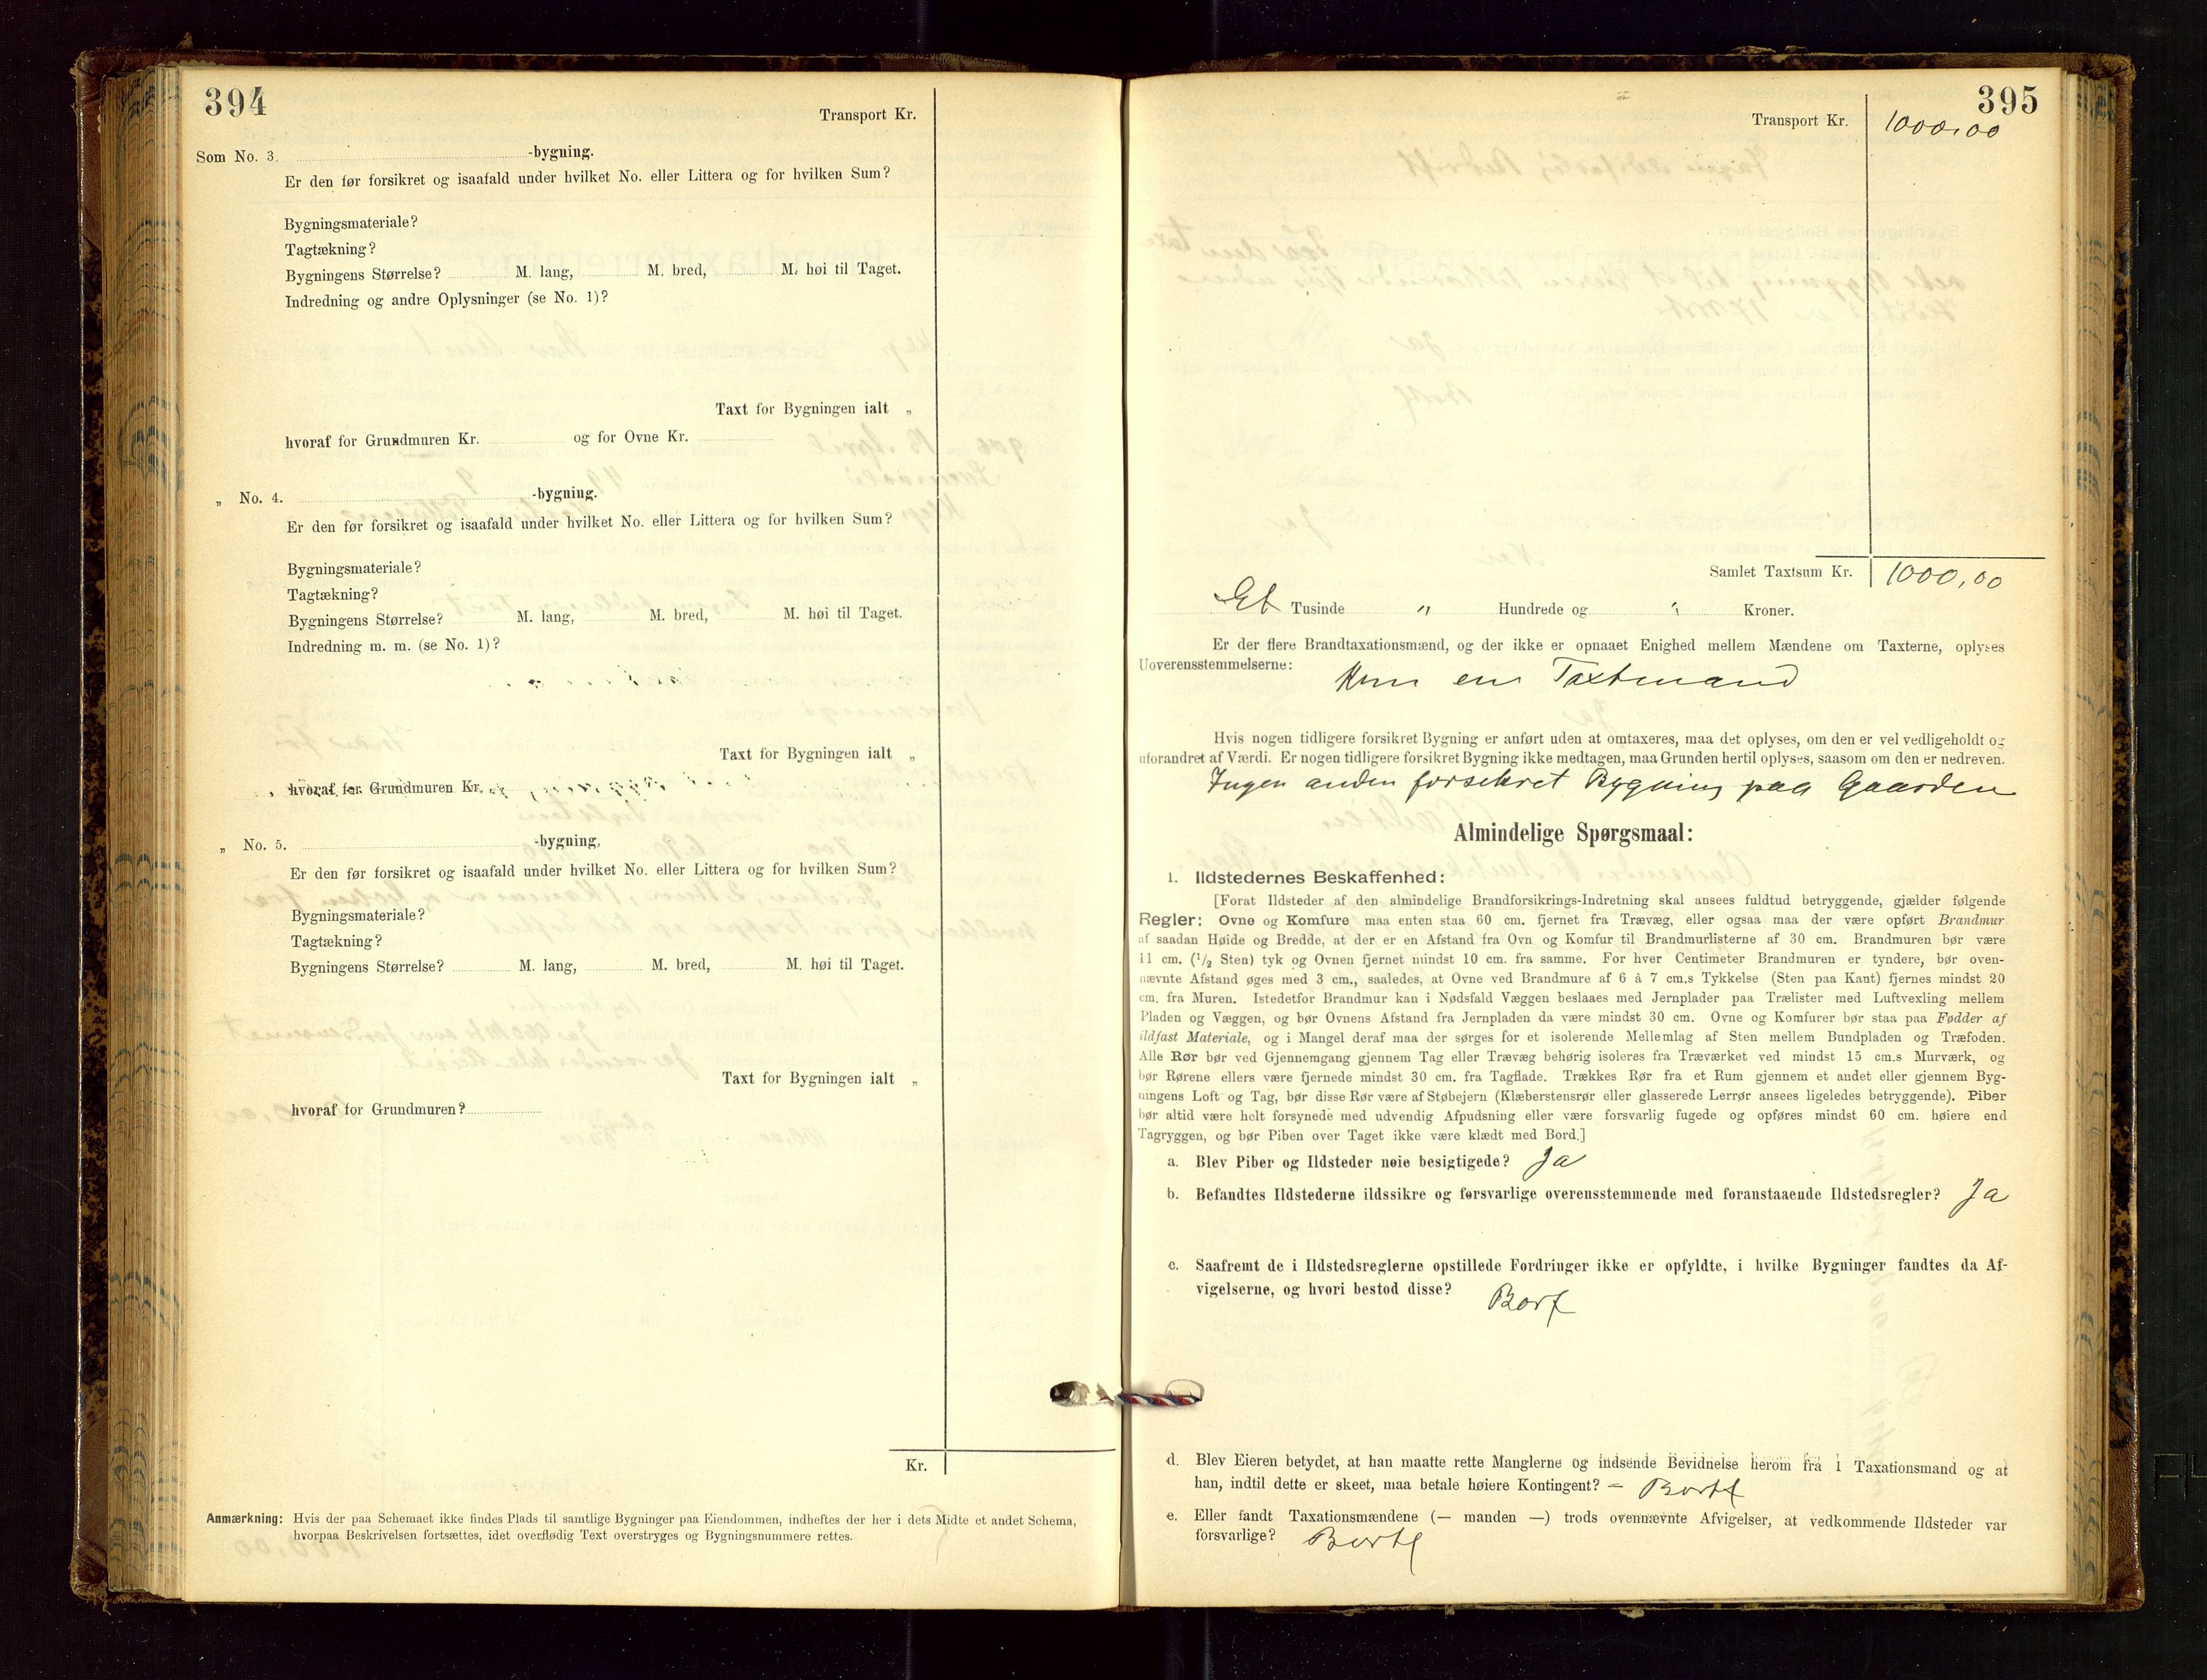 394
Transport Kr.
Som No. 3. -bygning.
Er den før forsikret og isaafald under hvilket No. eller Littera og for hvilken Sum?
Bygningsmateriale?
Tagtækning?
Bygningens Størrelse? M. lang, M. bred, M. høi til Taget.
Indredning og andre Oplysninger (se No. 1)?
Taxt for Bygningen ialt „
hvoraf for Grundmuren Kr. og for Ovne Kr.
„ No. 4. -bygning.
Er den før forsikret og isaafald under hvilket No. eller Littera og for hvilken Sum?
Bygningsmateriale?
Tagtækning?
Bygningens Størrelse? M. lang, M. bred, M. høi til Taget.
Indredning m. m. (se No. 1)?
Taxt for Bygningen ialt „
hvoraf for Grundmuren Kr.
„ No. 5. -bygning,
Er den før forsikret og isaafald under hvilket No. eller Littera og for hvilken Sum?
Bygningsmateriale?
Tagtækning?
Bygningens Størrelse? M. lang, M. bred, M. høi til Taget.
Taxt for Bygningen ialt „
hvoraf for Grundmuren?
Kr.
Anmærkning: Hvis der paa Schemaet ikke findes Plads til samtlige Bygninger paa Eiendommen, indheftes der her i dets Midte et andet Schema,
hvorpaa Beskrivelsen fortsættes, idet overflødig Text overstryges og Bygningsnummere rettes.
395
Transport Kr. 1000,00
Samlet Taxtsum Kr. 1000,00
Et Tusinde „ Hundrede og „ Kroner.
Er der flere Brandtaxationsmænd, og der ikke er opnaaet Enighed mellem Mændene om Taxterne, oplyses
Uoverensstemmelserne: Kun en Taxtmand
Hvis nogen tidligere forsikret Bygning er anført uden at omtaxeres, maa det oplyses, om den er vel vedligeholdt og
uforandret af Værdi. Er nogen tidligere forsikret Bygning ikke medtagen, maa Grunden hertil oplyses, saasom om den er nedreven.
Ingen anden forsekret Bygning paa Gaarden
Almindelige Spørgsmaal:
1. Ildstedernes Beskaffenhed:
[Forat Ildsteder af den almindelige Brandforsikrings-Indretning skal ansees fuldtud betryggende, gjælder følgende
Regler: Ovne og Komfure maa enten staa 60 cm. fjernet fra Trævæg, eller ogsaa maa der være opført Brandmur
af saadan Høide og Bredde, at der er en Afstand fra Ovn og Komfur til Brandmurlisterne af 30 cm. Brandmuren bør være
11 cm. (1/2 Sten) tyk og Ovnen fjernet mindst 10 cm. fra samme. For hver Centimeter Brandmuren er tyndere, bør oven-
nævnte Afstand øges med 3 cm., saaledes, at Ovne ved Brandmure af 6 à 7 cm.s Tykkelse (Sten paa Kant) fjernes mindst 20
cm. fra Muren. Istedetfor Brandmur kan i Nødsfald Væggen beslaaes med Jernplader paa Trælister med Luftvexling mellem
Pladen og Væggen, og bør Ovnens Afstand fra Jernpladen da være mindst 30 cm. Ovne og Komfurer bør staa paa Fødder af
ildfast Materiale, og i Mangel deraf maa der sørges for et isolerende Mellemlag af Sten mellem Bundpladen og Træfoden.
Alle Rør bør ved Gjennemgang gjennem Tag eller Trævæg behørig isoleres fra Træværket ved mindst 15 cm.s Murværk, og
bør Rørene ellers være fjernede mindst 30 cm. fra Tagflade. Trækkes Rør fra et Rum gjennem et andet eller gjennem Byg-
ningens Loft og Tag, bør disse Rør være af Støbejern (Klæberstensrør eller glasserede Lerrør ansees ligeledes betryggende). Piber
bør altid være helt forsynede med udvendig Afpudsning eller være forsvarlig fugede og opføres mindst 60 cm. høiere end
Tagryggen, og bør Piben over Taget ikke være klædt med Bord.]
a. Blev Piber og Ildsteder nøie besigtigede? Ja
b. Befandtes Ildstederne ildssikre og forsvarlige overensstemmende med foranstaaende Ildstedsregler? Ja
c. Saafremt de i Ildstedsreglerne opstillede Fordringer ikke er opfyldte, i hvilke Bygninger fandtes da Af-
vigelserne, og hvori bestod disse? Bort
d. Blev Eieren betydet, at han maatte rette Manglerne og indsende Bevidnelse herom fra 1 Taxationsmand og at
han, indtil dette er skeet, maa betale høiere Kontingent? – Bortf
e. Eller fandt Taxationsmændene (— manden —) trods ovennævnte Afvigelser, at vedkommende Ildsteder var
forsvarlige? Bortf